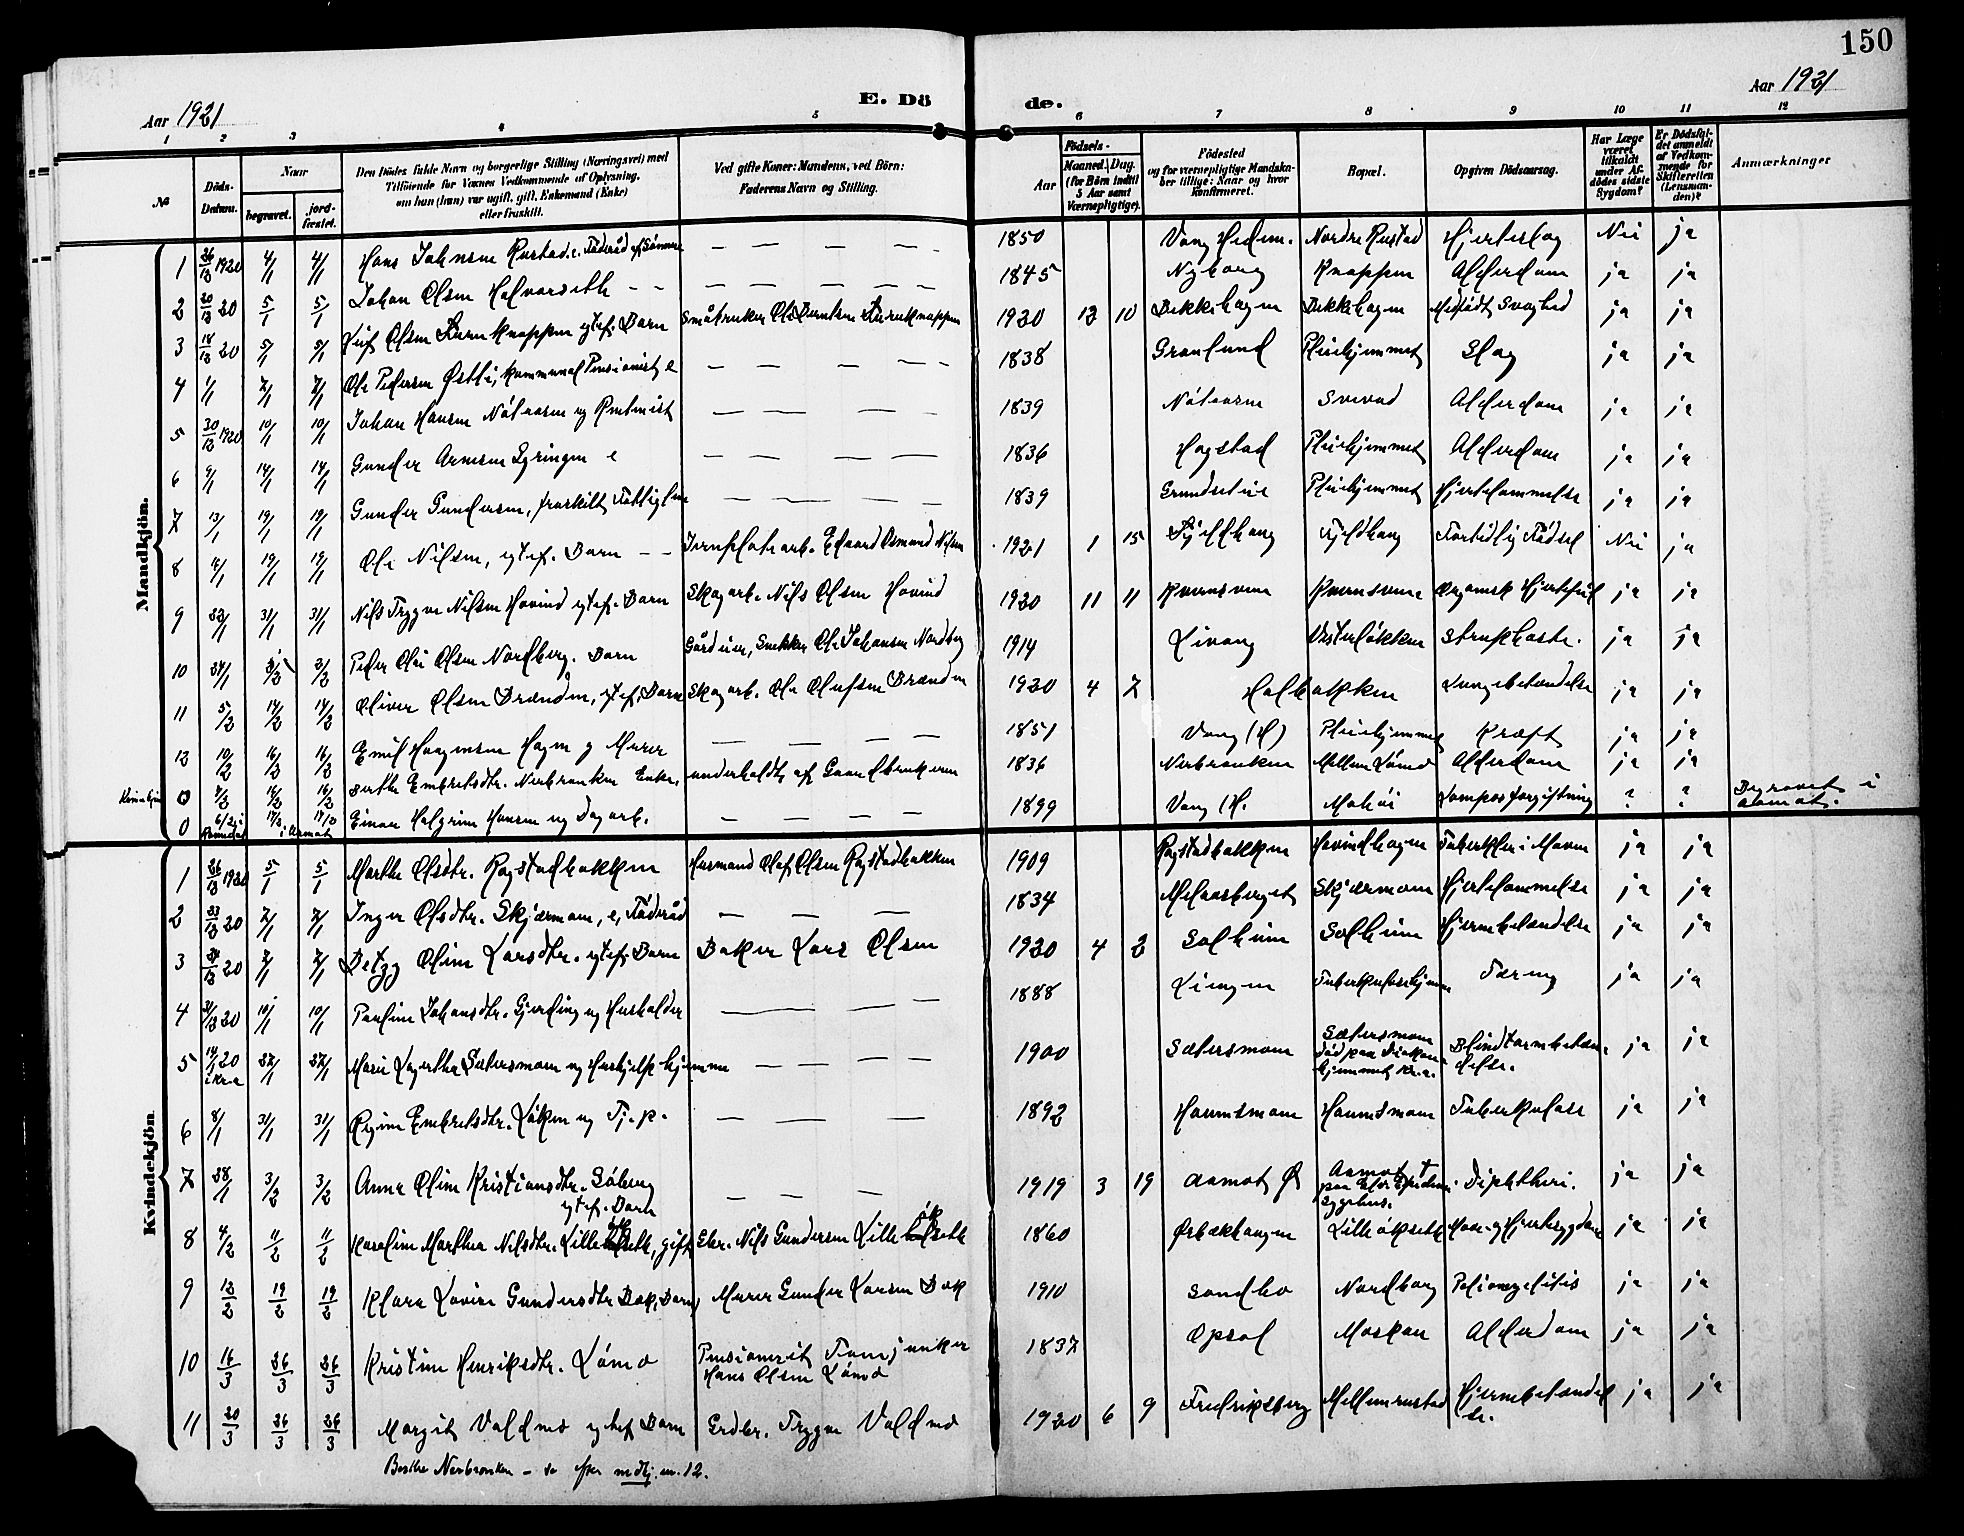 150
Aar 1921 E. Dö de. Aar 1921
1 2 3 4 5 6 7 8 9 10 11 12
No
Döds-Datum.
Naar begravet. jord-fæstet.
Den Dödes fulde Navn og borgerlige Stilling (Næringsvei) med Tilföiende for Voxnes Vedkommende af Oplysning, om hun (han) var ugift, gift, Enkemand (Enke) eller fraskilt.
Ved gifte Koner: Mandens, ved Börn: Faderens Navn og Stilling.
Födsels- Aar Maaned. Dag. (for Börn indtil 5 Aar samt Værnepligtige).
Födested og for værnepligtige Mandskaber tillige: Naar og hvor konfirmeret.
Bopæl.
Opgiven Dödsaarsag.
Har Læge været tilkaldt under Afdödes sidste Sygdom?
Er Dödsfaldet anmeldt af Vedkommende for Skifteretten (Lensmanden)?
Anmærkninger
Mandkjön.
1 26/12 1920 4/1 4/1 Hans Johnsen Rustad e. Föderåd af Sönnen — — — — 1850 Vang Hedm. Nordre Rustad Hjerteslag Nei ja
2 20/12 20 5/1 5/1 Johan Olsen Halvorseth — — — — — — 1845 Nyborg Knappen Alderdom ja ja
3 18/12 20 5/1 5/1 Leif Olsen Furuknappen egtef. Barn Småbruker Ole Berntsen Furuknappen 1920 12 10 Bekkehagen Bekkehagen Medfødt Svaghed ja ja
4 1/1 7/1 7/1 Ole Pedersen Østli, kommunal Pensionist e — — — — 1838 Grønlund Pleiehjemmet Slag ja ja
5 30/12 1920 10/1 10/1 Johan Hansen Nåtaasen ug Rentenist — — — — 1839 Nåtaasen Alderdom ja ja
6 9/1 14/1 14/1 Gunder Arnesen Syringen e — — — — 1836 Hagstad Pleiehjemmet Alderdom ja ja
7 13/1 19/1 19/1 Gunder Gundersen, fraskilt Fattiglem — — — — 1839 Grundsetsæ Pleiehjemmet Hjertelammelse ja ja
8 19/1 19/1 Ole Nilsen, egtef. Barn — — Jernplatearb. Edvard Osmund Nilsen 1921 1 15 Fjeldhaug Fjeldhaug Fortidlig Fødsel Nei ja
9 22/1 31/1 31/1 Nils Trygve Nilsen Hovind egtef. Barn Skogarb. Nils Olsen Hovind 1920 11 11 Kvernsveen Kvernsveen Organisk Hjertefeil ja ja
10 27/1 3/2 3/2 Peder Olai Olsen Nordberg. Barn Gårdeier, Snekker Ole Johansen Nordberg 1914 Livang Vesterløkken Strupehoste. ja ja
11 5/2 14/2 14/2 Oliver Olsen Brænden, egtef. Barn Skogarb. Ole Olufsen Brænden 1920 4 7 Holbakken Lungebetændelse ja ja
12 10/2 16/2 16/2 Emil Haagensen Hagen g Murer — — — — 1851 Vang (H) Pleiehjemmet Kræft ja ja
Kvindekjön 0 16/2 16/2 Berthe Embretsdtr. Nerbraaten Enke, underholdt af Gaardbrukeren 1836 Nerbraaten Mellem Lömo Alderdom ja ja
0 6/2 i Aamot Einar Halgrim Hansen ug Dagarb. — — — — 1899 Vang (H. Lamposforgiftning ? ? Begravet i Aamot.
Kvindekjön.
1 26/12 1920 5/1 5/1 Marthe Olsdtr. Rogstadbakken Husmand Olaf Olsen Rogstadbakken 1909 Rogstadbakken Hovindhagen Tuberkler i Maven ja ja
2 23/12 20 7/1 7/1 Inger Olsdtr. Skjærmoen, e, Föderåd — — — 1834 Melaasberget Skjærmoen Hjertelammelse ja ja
3 12 20 7/1 7/1 Betzy Oline Larsdtr. egtef. Barn Baker Lars Olsen 1920 4 2 Solheim Solheim Hjernebetændelse ja ja
4 31/12 20 10/1 10/1 Pauline Johansdtr. Gjerding ug Husholder — — — — 1888 Lingen Tuberkulosehjem Tæring ja ja
5 20 i Kr.a 27/1 27/1 Marie Lagertha Sætersmoen ug Hushjelp hjemme — — — — 1900 Sætersmoen Sætersmoen död paa Diakonhjemmet Kr.a. Blindtarmbetændelse. ja ja
6 8/1 31/1 31/1 Regine Embretsdtr. Løken ug Tj.p. — — — — 1892 Haumsmoen Haumsmoen Tuberkulose ja ja
7 28/1 3/2 3/2 Anna Oline Kristiansdtr. Söberg egtef. Barn — — — 1919 3 19 Aamot Ø Aamot † paa Elv. Epidemi sygehus. Diphtheri. ja ja
8 4/2 11/2 11/2 Karoline Marthea Nilsdtr. Lilleökseth, gift Eier. Nils Gundersen Lilleökseth 1860 Ørbækhaugen Lilleökseth Mave- og Hjertesygdom ja ja
9 12/2 19/2 19/2 Klara Lovise Gundersdtr Bak, Barn, Murer Gunder Larsen Bak 1910 Sandbo Nordborg Poliomyelitis ja ja
10 16/3 26/3 26/3 Kristine Henriksdtr. Lömo Pensionerit Fanejunker Hans Olsen Lömo 1837 Opsal Moskau Alderdom ja ja
11 20/3 26/3 26/3 Margit Voldmo egtef Barn Grdbr. Trygve Voldmo 1920 6 9 Fredriksberg Mellemrustad Hjernebetændelse. ja ja
Berthe Nerbraaten – se efter mdkj. nr. 12.